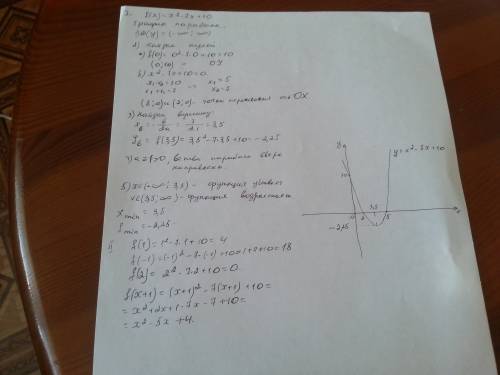 f(x) = x² - 7x + 10
График парабола.
D(y) = (-∞; ∞)
2) Найдём нулей
а) f(0) = 0² - 7·0 + 10 = 10
(0; 10) ОУ
б) x² - 7x + 10 = 0
x₁·x₂ = 10 x₁ = 5
x₁ + x₂ = 7 x₂ = 2
(5; 0) и (2; 0) - точки пересечения с OX
3) Найдём вершину
x_в = -b/2a = 7/2·1 = 3,5
y_в = f(3,5) = 3,5² - 7·3,5 + 10 = -2,25
4) a = 1 > 0, ветви параболы вверх
направлены.
5) x ∈ (-∞; 3,5) - функция убывает
x ∈ (3,5; ∞) - функция возрастает
x min = 3,5
f min = -2,25
f(1) = 1² - 7·1 + 10 = 4
f(-1) = (-1)² - 7·(-1) + 10 = 1 + 7 + 10 = 18
f(2) = 2² - 7·2 + 10 = 0
f(x+1) = (x+1)² - 7(x+1) + 10 =
= x² + 2x + 1 - 7x - 7 + 10 =
= x² - 5x + 4.
y = x² - 7x + 10
10
3,5
10 2 5
-2,25